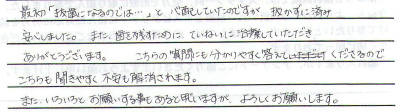 最初「抜歯になるのでは…」と心配していたのですが、抜かずに済み
安心しました。また、歯を残すために、ていねいに治療していただき
ありがとうございます。 こちらの質問にも分かりやすく答えていただけくださるので
こちらも聞きやすく不安も解消されます。
また、いろいろとお願いする事もあると思いますが、よろしくお願いします。